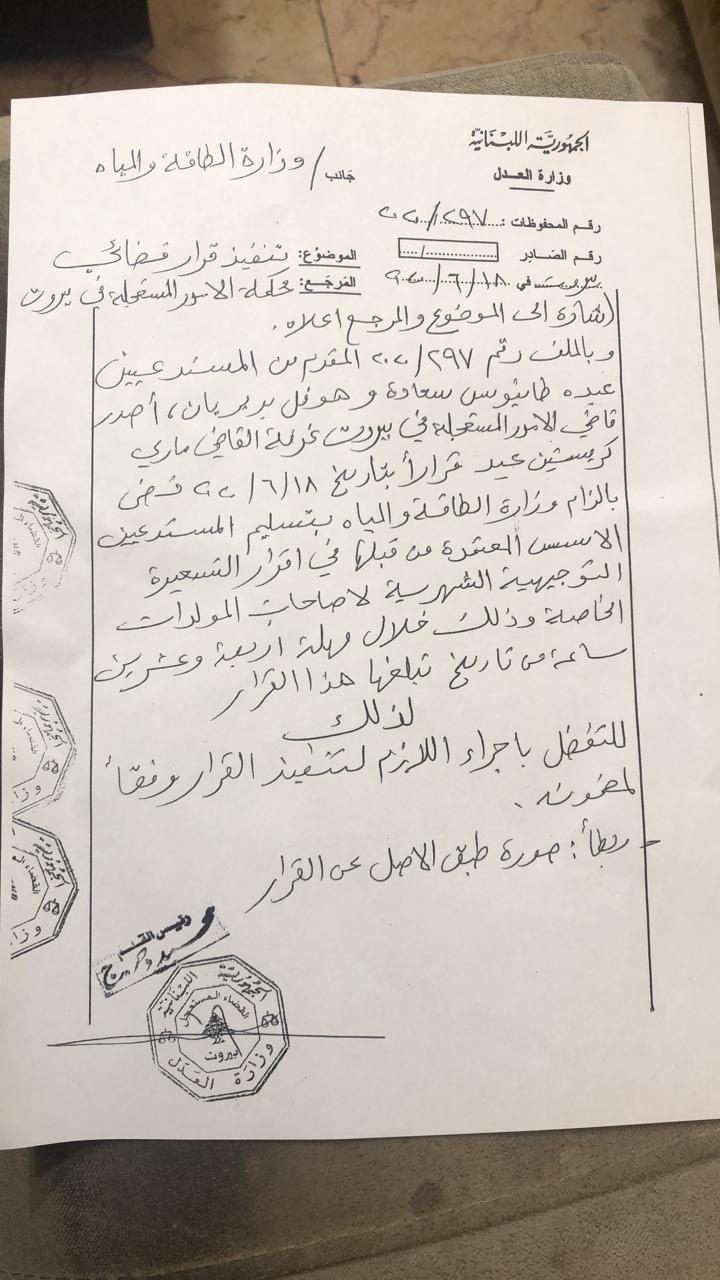 الجمهورية اللبنانية
وزارة العدل
جانب / وزارة الطاقة والمياه
رقم المحفوظات: ٢٩٧/٢٠٢٠
رقم الصادر /
الموضوع: تنفيذ قرار قضائي
بيروت في ١٨/٦/٢٠٢٠
المرجع: محكمة الامور المستعجلة في بيروت
إشارة الى الموضوع والمرجع اعلاه.
وبالملف رقم ٢٩٧/٢٠٢٠ المقدم من المستدعيين
عبده طانيوس سعادة و هوفل بربريان، أصدر
قاضي الامور المستعجلة في بيروت غرفة القاضي ماري
كريستين عيد قراراً بتاريخ ١٨/٦/٢٠٢٠ قضى
بالزام وزارة الطاقة والمياه بتسليم المستدعيين
الاسس المعتمدة من قبلها في اقرار التسعيرة
التوجيهية الشهرية لاصحاب المولدات
الخاصة وذلك خلال مهلة اربعة وعشرين
ساعة من تاريخ تبلغها هذا القرار
لذلك
للتفضل باجراء اللازم لتنفيذ القرار وفقاً
لمضمونه.
- ربطاً: صورة طبق الاصل عن القرار
رئيس القلم
الجمهورية اللبنانية
القضاء المستعجل
بيروت
وزارة العدل